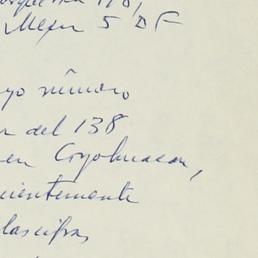 Mexer 5 DF
yo número
del 138
en Coyohuacan,
cuentemente
las cifras,